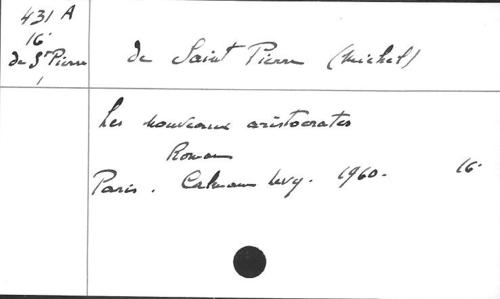 431 A
16°
de St Pierre
1
de Saint Pierre (Michel)
Les nouveaux aristocrates
Roman
Paris. Calmann Levy. 1960. 16°